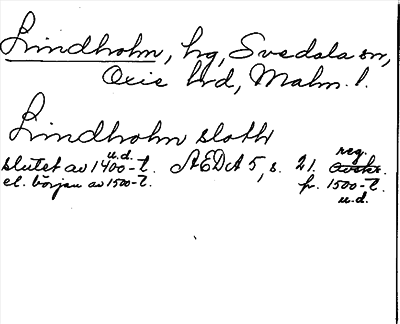 Lindholm, hg, Svedala sn,
Oxie hrd, Malm. l.
Lindholm sloth
u.d. reg.
slutet av 1400-t. AEDA 5, s. 21. avskr.
el. början av 1500-t. fr. 1500-t.
u.d.